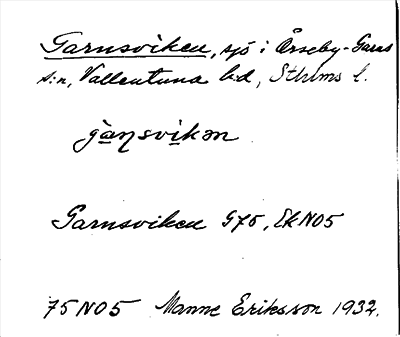 Garnsviken, sjö i Össeby-Garns
s:n, Vallentuna hd, Sthlms l.
gà̱ɳsvi̱kən
Garnsviken G75, EkN05
75N05 Manne Eriksson 1932.